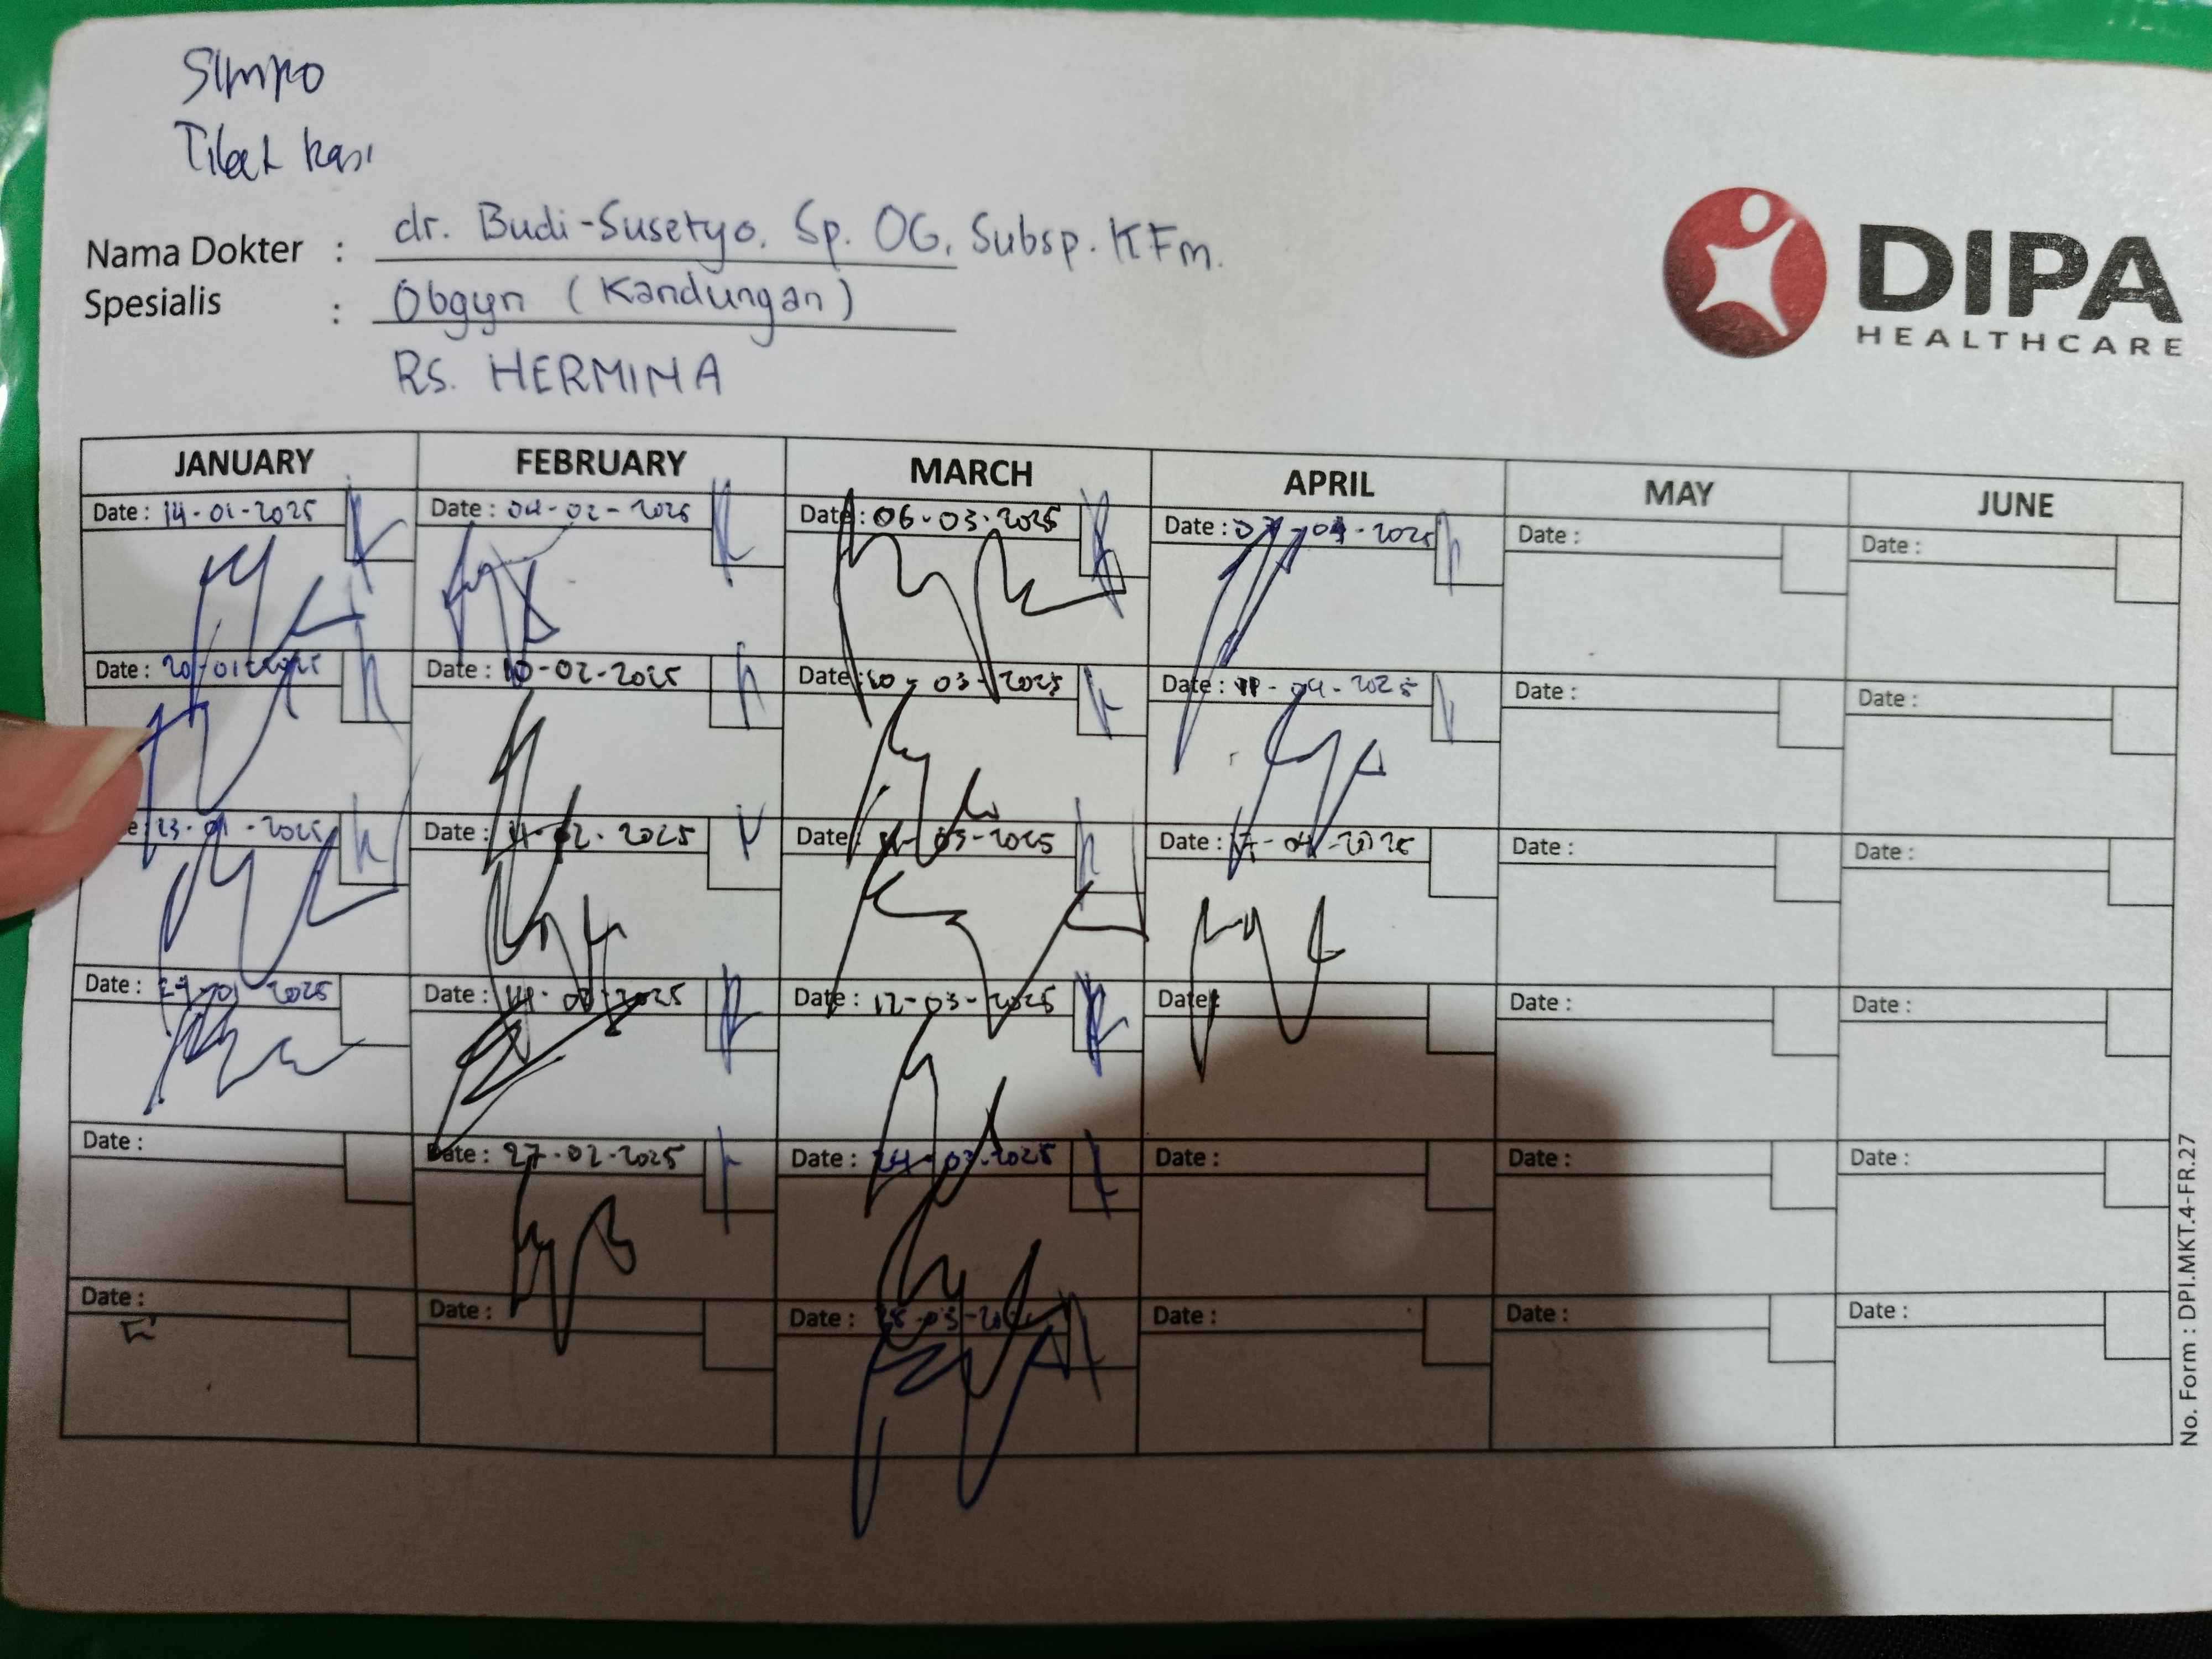 Simpo
Nama Dokter : dr. Budi-Susetyo. Sp. OG, Subsp. KFm.
Spesialis : Obgyn (Kandungan)
Rs. HERMINA
DIPA
HEALTHCARE
JANUARY FEBRUARY MARCH APRIL MAY JUNE
Date : 14-01-2025 Date : 04-02-2025 Date : 06-03-2025 Date : 07-04-2025 Date : Date :
Date : 20-01-2025 Date : 10-02-2025 Date : 10-03-2025 Date : 11-04-2025 Date : Date :
23-01-2025 Date : 02-2025 Date : 03-2025 Date : 17-04-2025 Date : Date :
Date : 01-2025 Date : 2025 Date : 12-03-2025 Date : Date : Date :
Date : Date : 27-02-2025 Date : 24-03-2025 Date : Date : Date :
Date : Date : Date : Date : Date : Date :
No. Form : DPI.MKT.4-FR.27